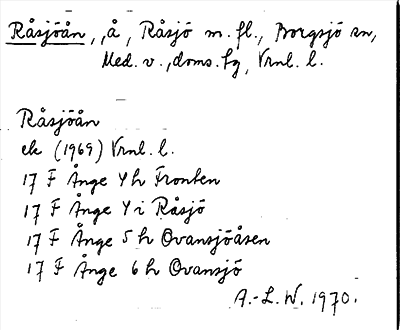 Råsjöån, å, Råsjö m.fl., Borgsjö sn,
Med. v., doms.fg, Vrnl. l.
Råsjöån
ek (1969) Vrnl. l.
17 F Ånge 4 h Fronten
17 F Ånge 4 i Råsjö
17 F Ånge 5 h Ovansjöåsen
17 F Ånge 6 h Ovansjö
A.-L. W. 1970.